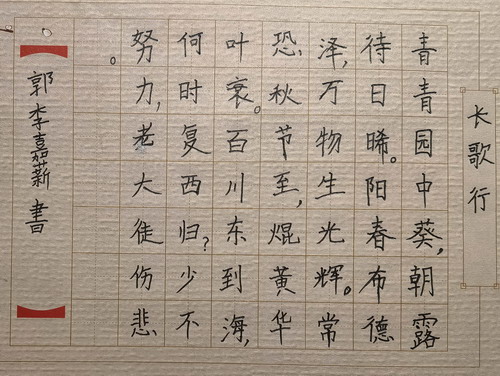 长歌行
青青园中葵,朝露
待日晞。阳春布德
泽,万物生光辉。常
恐秋节至,焜黄华
叶衰。百川东到海,
何时复西归?少不
努力,老大徒伤悲。
郭李嘉薪書